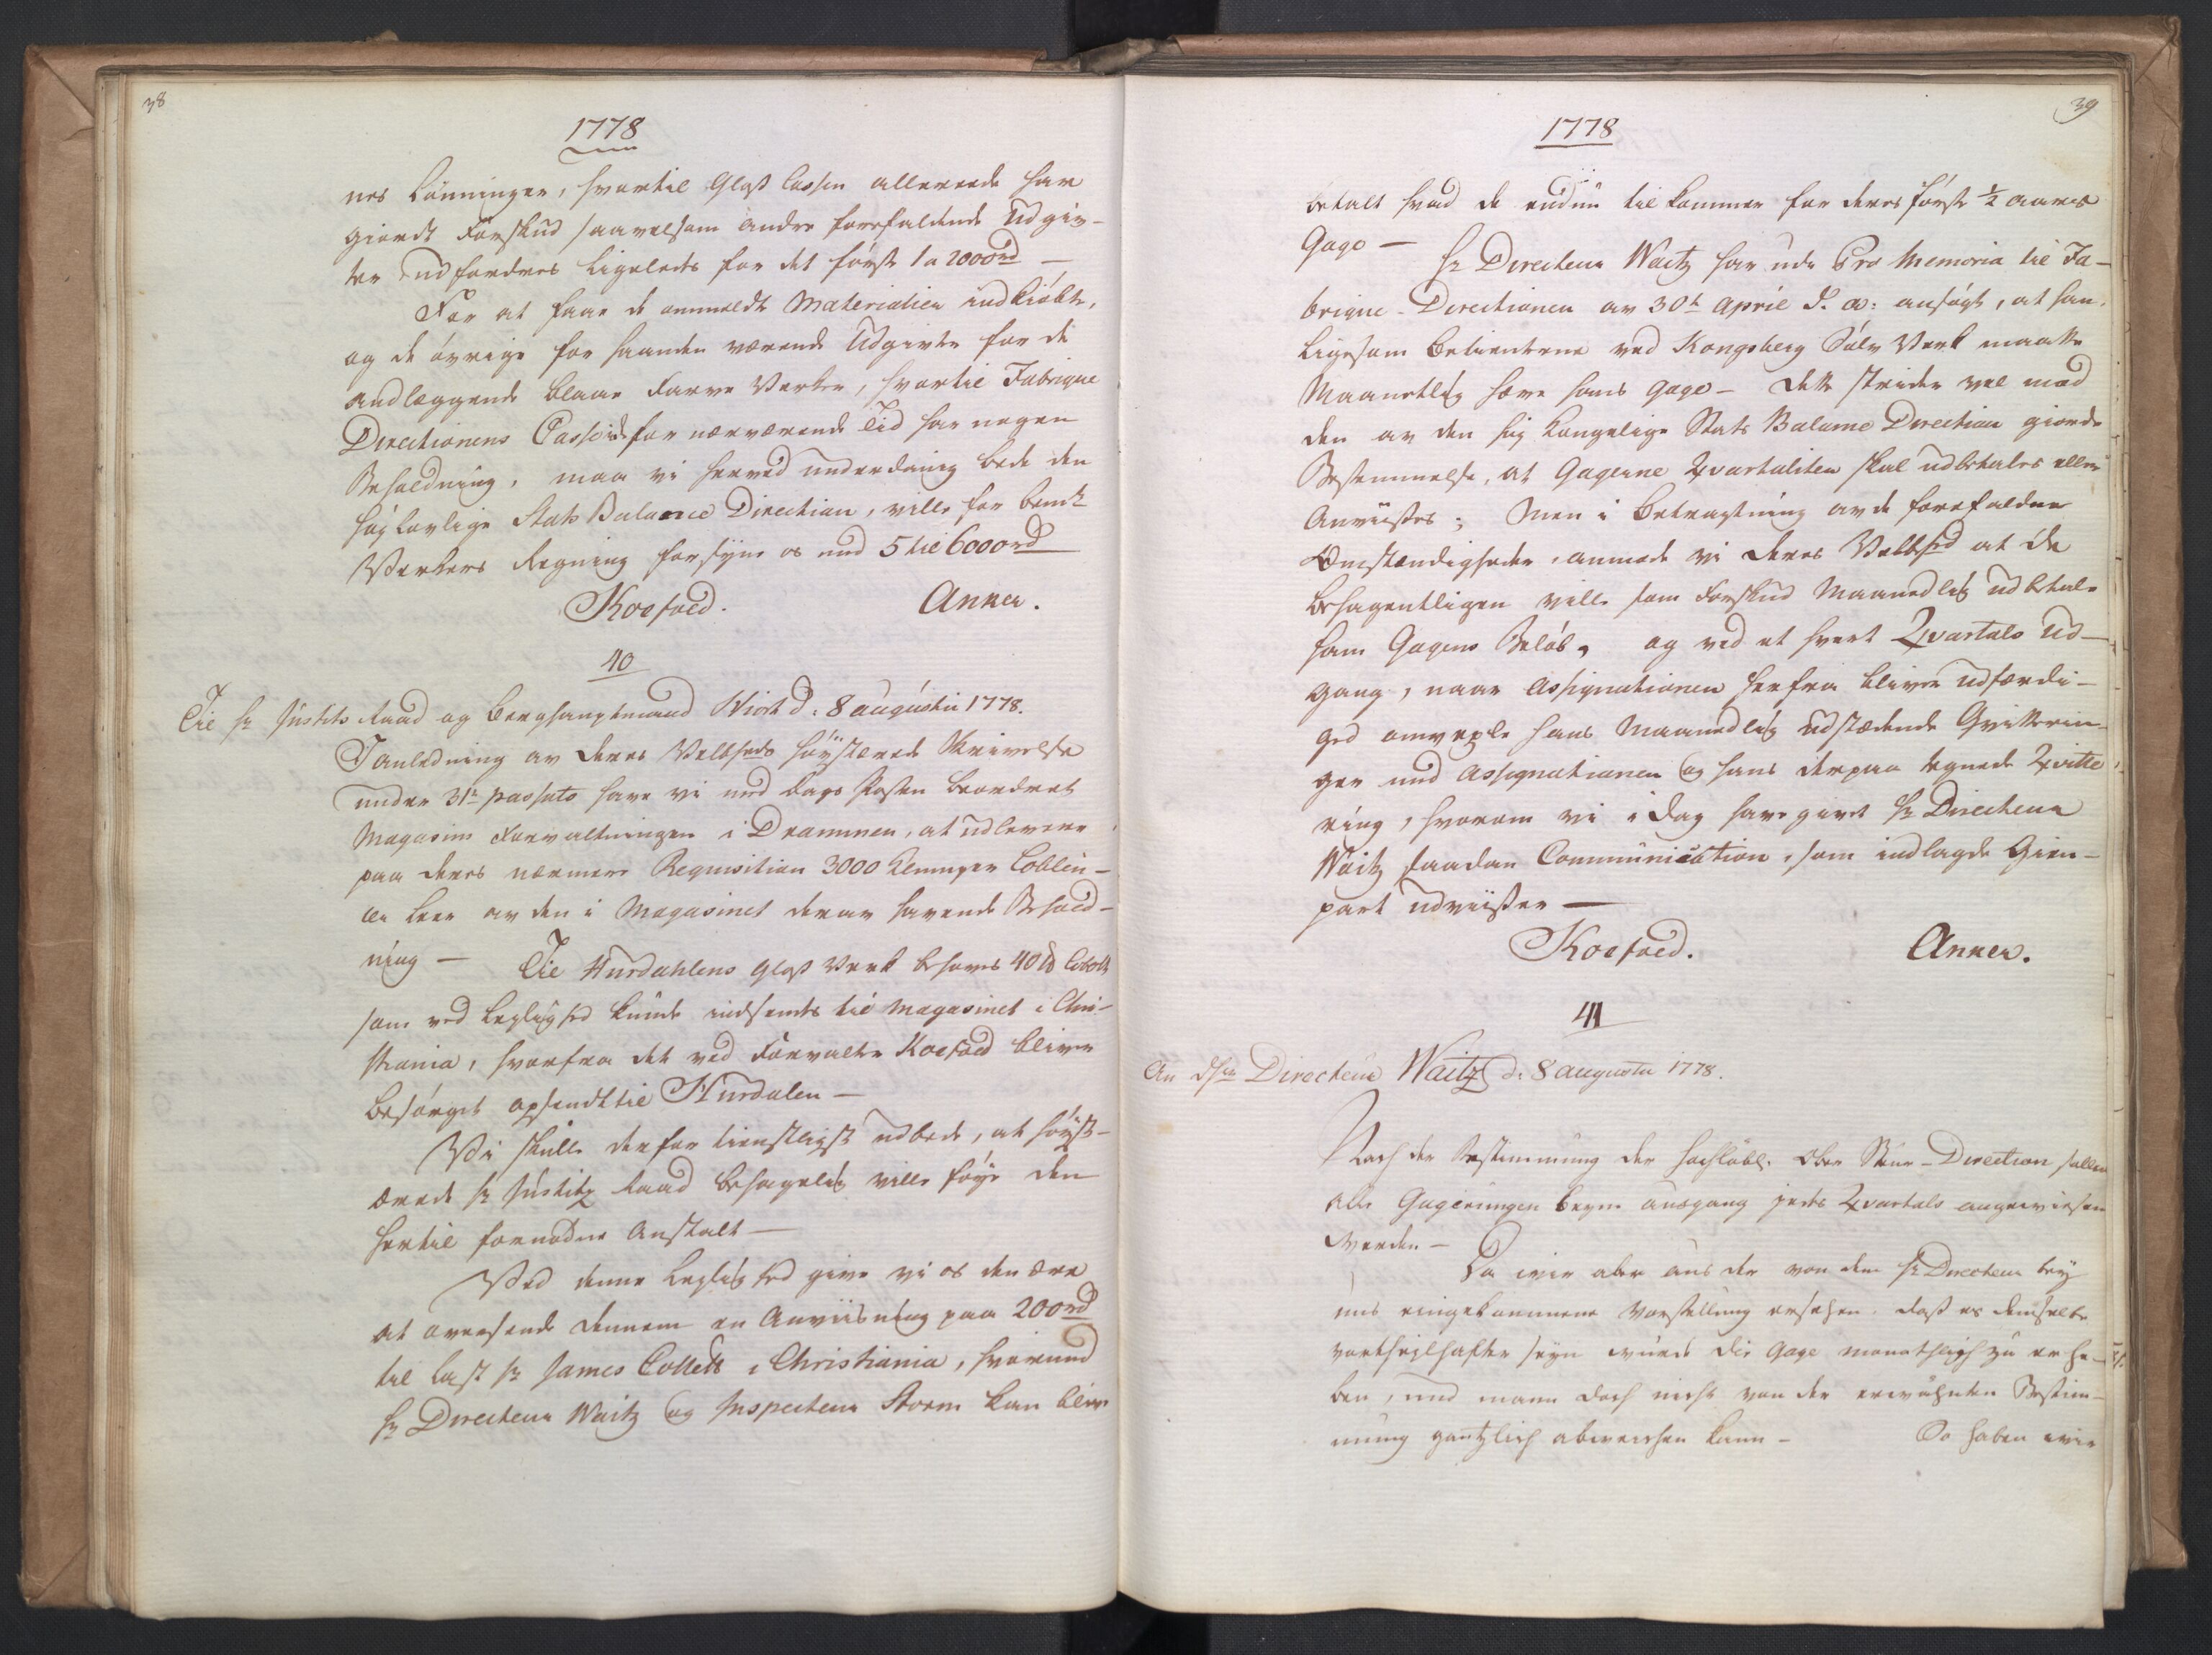 38
1778
nes Lønninger, hvortil Glas Cassen allereede har
giordt Forskud saavelsom andre forefaldende Udgiv-
ter udfordres ligeleds for det første 1 a 2000rd —
For at faae de anmeldte Materialier indkiøbte,
og de øvrige for haanden værende Udgivter for de
anlæggende blaae Farve Værker, hvortil Fabrique
Directionens Casse ei for nærværende Tid har nogen
Beholdning, maa vi herved underdanig bede den
høylovlige Stats Balance Direction, ville for bemte
Værkers Regning forsyne os med 5 til 6000rd
Koefoed. Anker.
40
Til Hr Justits Raad og Berghauptmand Hiort d. 8 augustii 1778.
I anledning av Deres Velbheds høystærede Skrivelse
under 31te passato have vi med dags Posten beordret
Magazins Forvaltningen i Drammen, at udlevere
paa deres nærmere Requisition 3000 Klumper Coblin-
er Leer av den i Magasinet derav havende Behold-
ning — Til Hurdahlens Glas Værk behøves 40 ℔ Cobolt
som ved Leylighed kunde indsendes til Magasinet i Chri-
stiania, hvorfra det ved Forvalter Koefoed bliver
besørget opsendt til Hurdalen —
Vi skulle derfor tienstligst udbede, at høyst-
ærede Hr Justitz Raad behagelig ville føye den
hertil fornødne Anstalt —
Ved denne Leylighed give vi os den ære
at oversende dennem en Anviisning paa 200rd
til last Hr James Collett i Christiania, hvormed
Hr Directeur Waitz og Inspecteur Storm kan blive
39
1778
betalt hvad de endnu tilkommer for deres første ½ aars
Gage — Hr Directeur Waitz har udi Pro Memoria til Fa-
brique-Directionen av 30te April d. a: ansøgt, at han,
ligesom Betienterne ved Kongsberg Sølv Verk maatte
Maanetlig hæve hans Gage — Dette strider vel mod
den av den høy Kongelige Stats Balance Direction giorde
Bestemmelse, at Gagerne Qvartaliter skal udbetales eller
Anviises; Men i Betragtning av de forefaldne
Omstændigheder, anmode vi deres Velbhed at de
behagentligen ville som Forskud Maanedlig udbetale
ham Gagens Beløb, og ved et hvert Qvartals Ud-
gang, naar Assignationen herfra bliver udfærdi-
get omvexle hans Maanedlig udstædende Qvitterin-
ger med Assignationen og hans derpaa tegnede Qvitte-
ring, hvorom vi i dag have givet Hr Directeur
Waitz saadan Communication, som indlagde Gien-
part udviiser —
Koefoed. Anker.
41
An dHrn Directeur Waitz d. 8 augustii 1778.
Nach der Bestimmung der hochlöbl. Ober Steur-Direction sollen
alle Gagerungen beym ausgang jedes Qvartals angewiesen
werden —
Da wir aber aus der von dem Hr Directeur bey
uns eingekommene Vorstellung ersehen, daß es demselben
vortheilhafter seyn würde die Gage monathlich zu erhe-
ben, und mann doch nicht von der erwähnten Bestim-
mung gantzlich abweichen kann — So haben wir